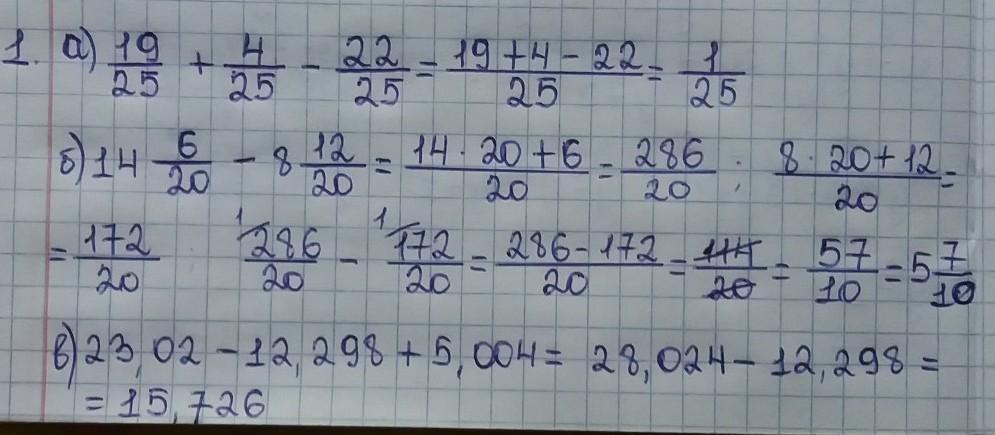 1. а) 19/25 + 4/25 - 22/25 = 19+4-22/25 = 1/25
б) 14 6/20 - 8 12/20 = 14·20+6/20 = 286/20 ; 8·20+12/20 =
= 172/20 ¹286/20 - ¹172/20 = 286-172/20 = 114/20 = 57/10 = 5 7/10
в) 23,02 - 12,298 + 5,004 = 28,024 - 12,298 =
= 15,726